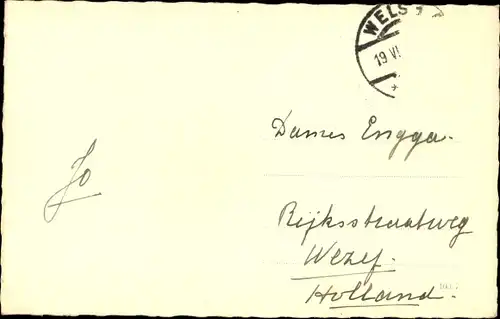 WELS
19 VI
Dames Engga.
Jo
Rijksstraatweg
Wezep.
Holland.